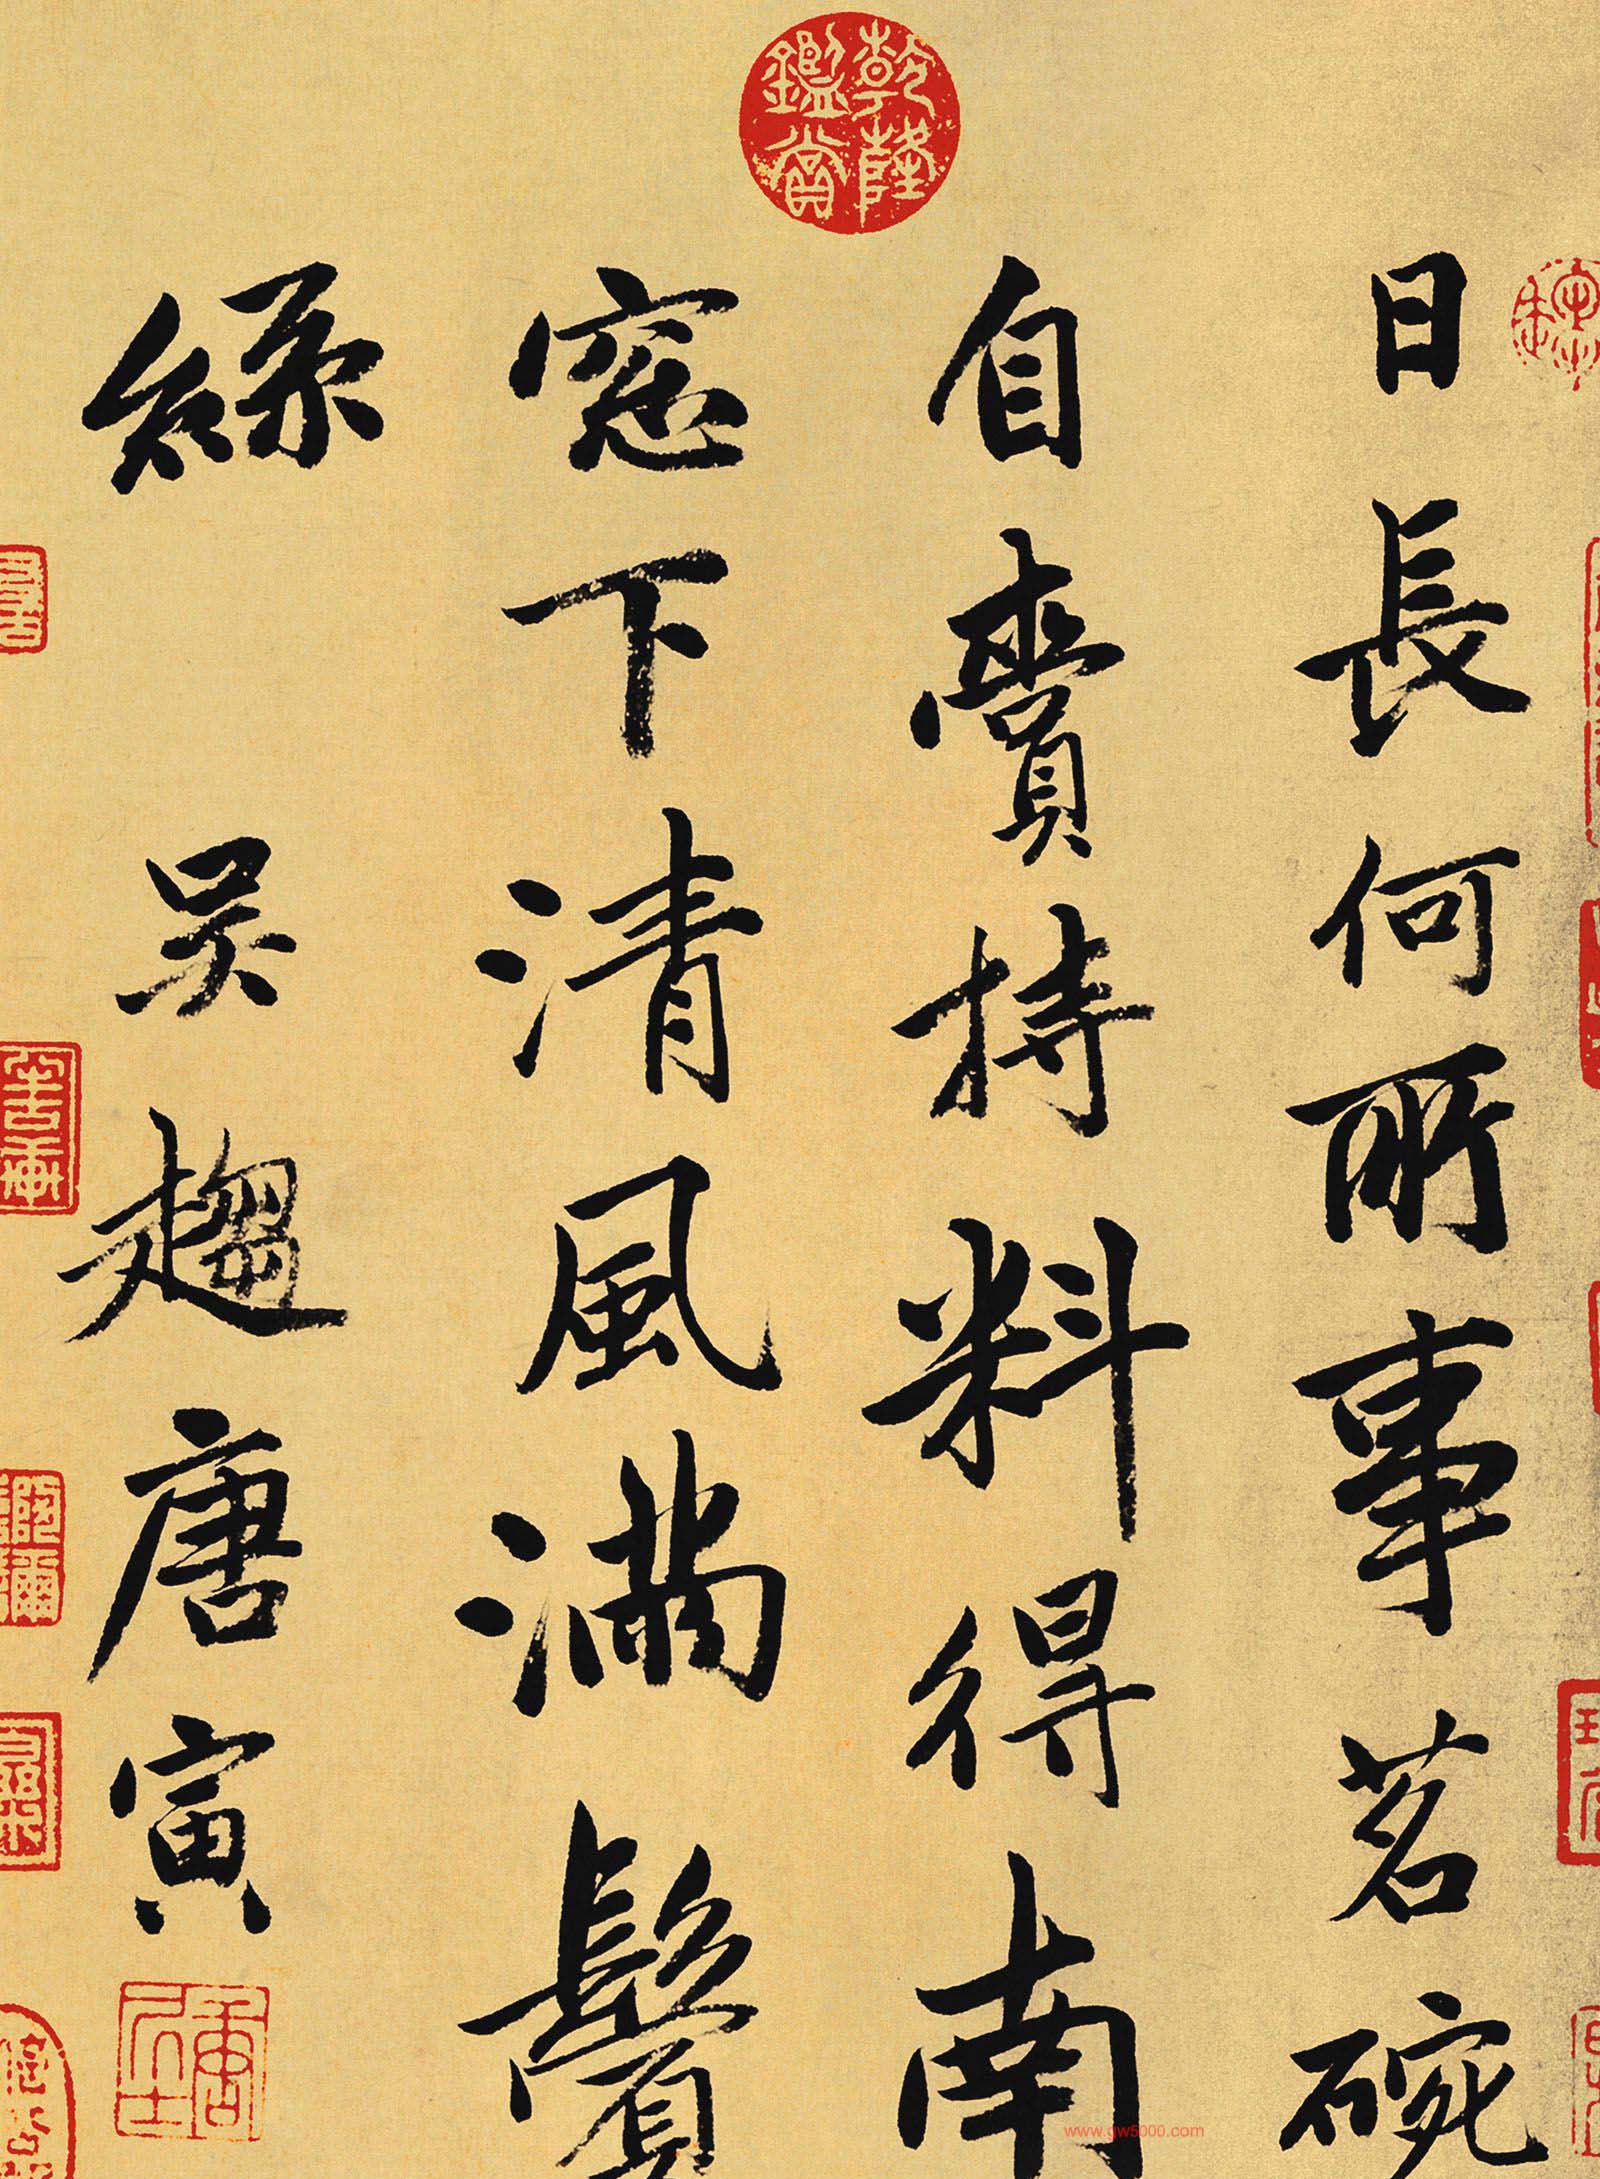 日長何所事茗碗
自賫持料得南
窓下清風滿鬢
絲
吳趨唐寅
乾隆鑑賞
www.gw5000.com